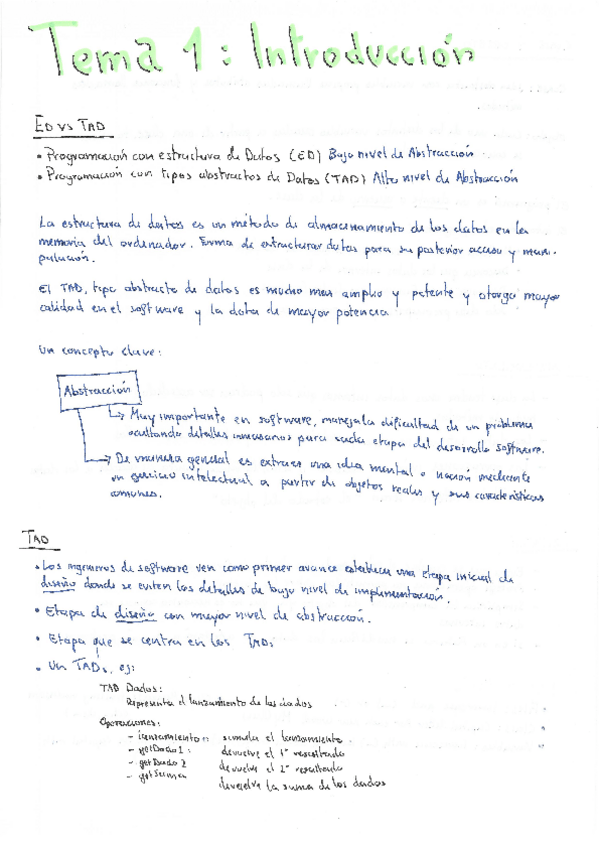 Tema 1: Introducción
ED vs TAD
• Programación con estructura de Datos (ED) Bajo nivel de Abstracción
• Programación con tipos abstractos de Datos (TAD) Alto nivel de Abstracción
La estructura de datos es un método de almacenamiento de los datos en la
memoria del ordenador. Forma de estructurar datos para su posterior acceso y mani-
pulación.
El TAD, tipo abstracto de datos es mucho mas amplio y potente y otorga mayor
calidad en el software y la dota de mayor potencia
Un concepto clave:
Abstracción
↳ Muy importante en software, maneja la dificultad de un problema
ocultando detalles innecesarios para cada etapa del desarrollo software.
→ De manera general es extraer una idea mental o noción mediante
un ejercicio intelectual a partir de objetos reales y sus características
comunes.
TAD
• Los ingenieros de software ven como primer avance establecer una etapa inicial de
diseño donde se eviten los detalles de bajo nivel de implementación.
• Etapa de diseño con mayor nivel de abstracción.
• Etapa que se centra en los TADs
• Un TAD, es:
TAD Dados:
Representa el lanzamiento de los dados
Operaciones:
- lanzamiento: simula el lanzamiento
- getDado1: devuelve el 1º resultado
- getDado2 devuelve el 2º resultado
- getSuma devuelve la suma de los dados